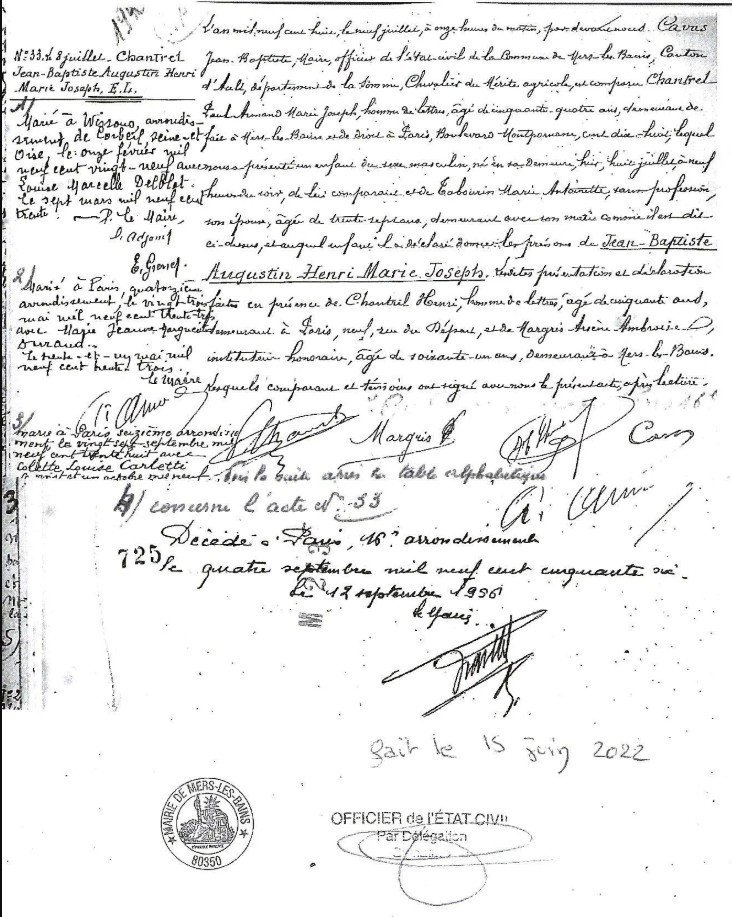 L'an mil neuf cent huit, le neuf juillet, à onze heures du matin, par devant nous Cavas
Jean Baptiste, Maire, officier de l'état civil de la Commune de Mers-les-Bains, Canton
d'Ault, département de la Somme, Chevalier du Mérite agricole, est comparu Chantrel
Paul Armand Marie Joseph, homme de lettres, âgé de cinquante-quatre ans, demeurant de
fait à Mers-les-Bains et de droit à Paris, Boulevard Montparnasse, cent dix-huit, lequel
nous a présenté un enfant du sexe masculin, né en sa demeure, hier, huit juillet à neuf
heures du soir, de lui comparant et de Tabourin Marie Antoinette, sans profession,
son épouse, âgée de trente sept ans, demeurant avec son mari comme il est dit
ci-dessus, et auquel enfant il a déclaré donner les prénoms de Jean-Baptiste
Augustin Henri Marie Joseph. Lesdites présentation et déclaration
faites en présence de Chantrel Henri, homme de lettres, âgé de cinquante ans,
demeurant à Paris, neuf, rue du Départ, et de Margris Arsène Ambroise
instituteur honoraire, âgé de soixante-un ans, demeurant à Mers-les-Bains.
Lesquels comparant et témoins ont signé avec nous le présent acte, après lecture.
Margris
N° 33. 8 juillet - Chantrel
Jean-Baptiste Augustin Henri
Marie Joseph, E.L.
1/
Marié à Wissous, arrondis-
sement de Corbeil, Seine-et
Oise, le onze février mil
neuf cent vingt-neuf avec
Louise Marcelle
Le sept mars mil neuf cent
trente
P. le Maire,
l'Adjoint
2/ Marié à Paris, quatorzième
arrondissement le vingt trois
mai mil neuf cent trente trois
avec Marie Jeanne Marguerite
Durand
Le trente-et-un mai mil
neuf cent trente trois.
Le Maire
3/
marié à Paris seizième arrondisse
ment le vingt sept septembre mil
neuf cent trente huit avec
Colette Louise Carletti
vingt et un octobre
Voir la suite après la table alphabétique
4/ concerne l'acte N° 33
Décédé à Paris, 16e arrondissement
725
le quatre septembre mil neuf cent cinquante six.
Le 12 septembre 1956
Le Maire
fait le 15 juin 2022
MAIRIE DE MERS-LES-BAINS
80350
OFFICIER de l'ÉTAT CIVIL
Par Délégation